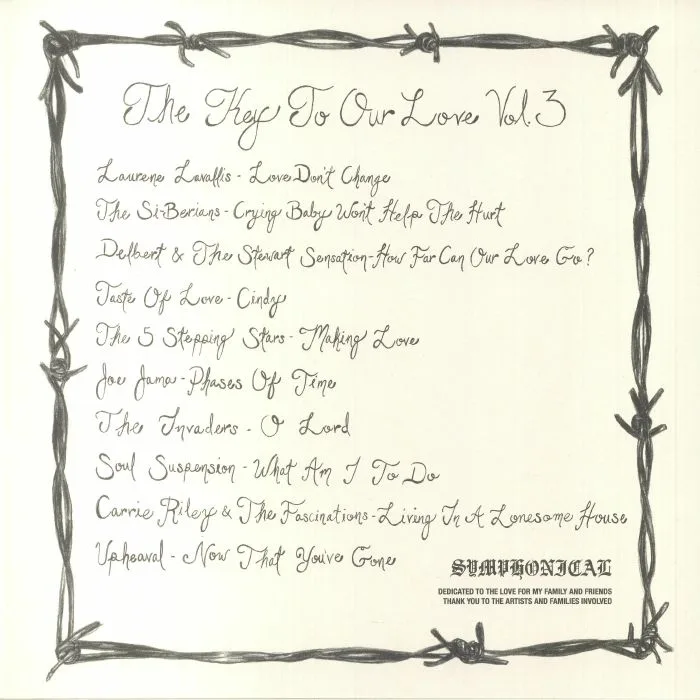 The Key To Our Love Vol. 3
Laurene Lavallis - Love Don't Change
The Si-Berians - Crying Baby Won't Help The Hurt
Delbert & The Stewart Sensation - How Far Can Our Love Go?
Taste Of Love - Cindy
The 5 Stepping Stars - Making Love
Joe Jama - Phases Of Time
The Invaders - O Lord
Soul Suspension - What Am I To Do
Carrie Riley & The Fascinations - Living In A Lonesome House
Upheaval - Now That You've Gone
SYMPHONICAL
DEDICATED TO THE LOVE FOR MY FAMILY AND FRIENDS
THANK YOU TO THE ARTISTS AND FAMILIES INVOLVED